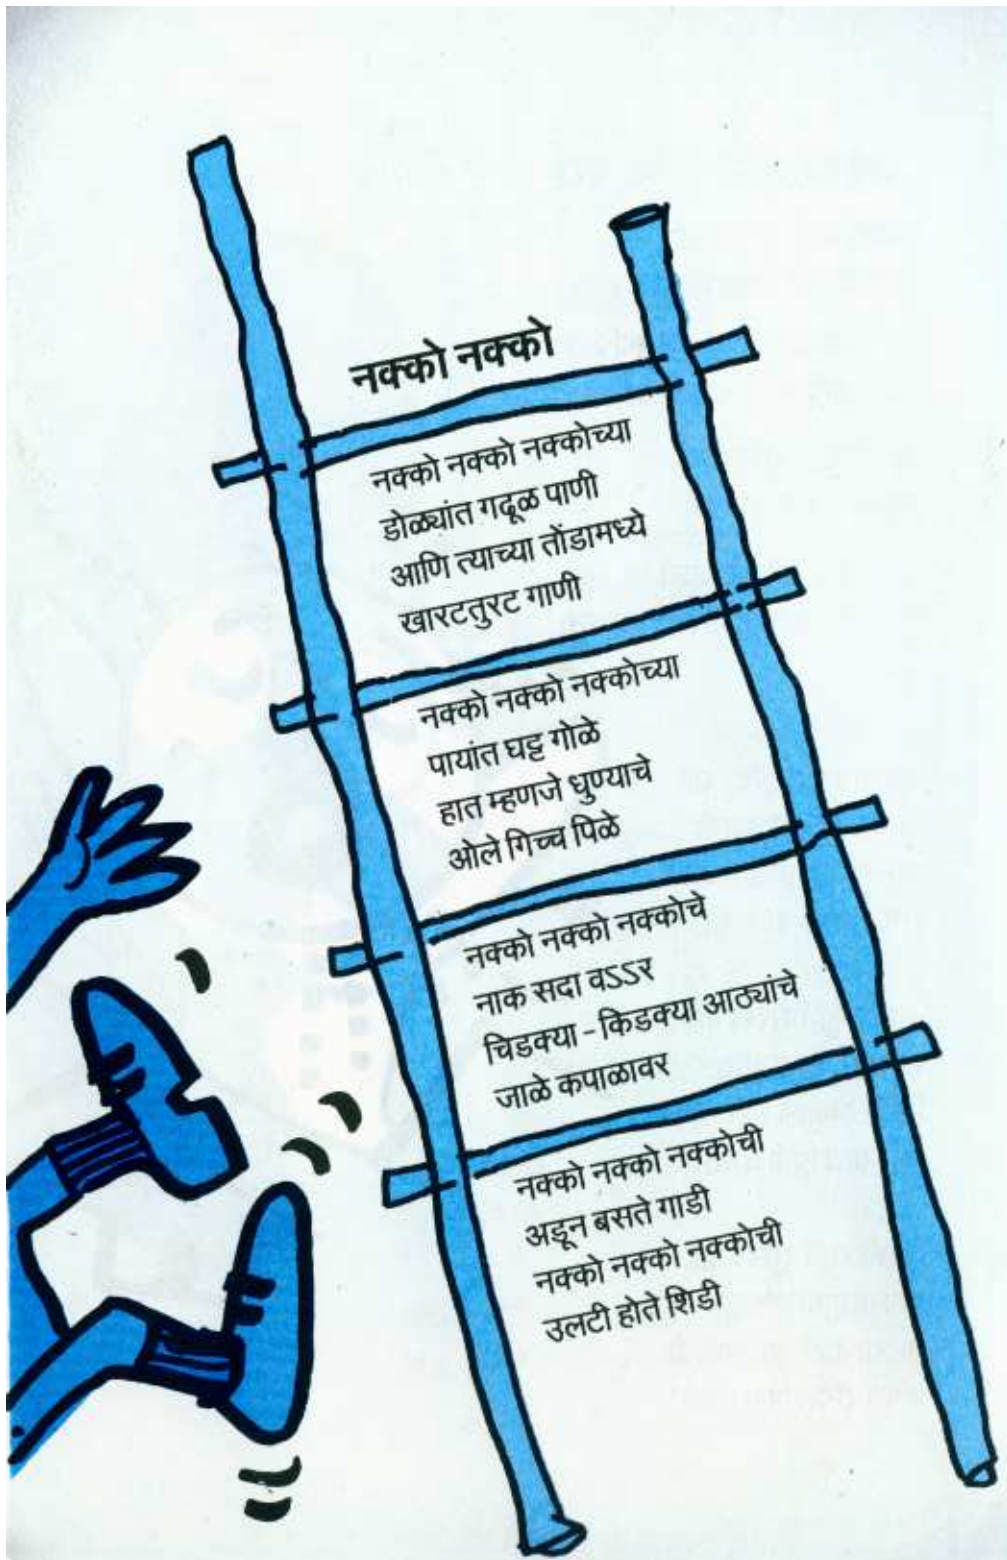 नक्को नक्को
नक्को नक्को नक्कोच्या
डोळ्यांत गढूळ पाणी
आणि त्याच्या तोंडामध्ये
खारटतुरट गाणी
नक्को नक्को नक्कोच्या
पायांत घट्ट गोळे
हात म्हणजे धुण्याचे
ओले गिच्च पिळे
नक्को नक्को नक्कोचे
नाक सदा वऽऽर
चिडक्या - किडक्या आठ्यांचे
जाळे कपाळावर
नक्को नक्को नक्कोची
अडून बसते गाडी
नक्को नक्को नक्कोची
उलटी होते शिडी